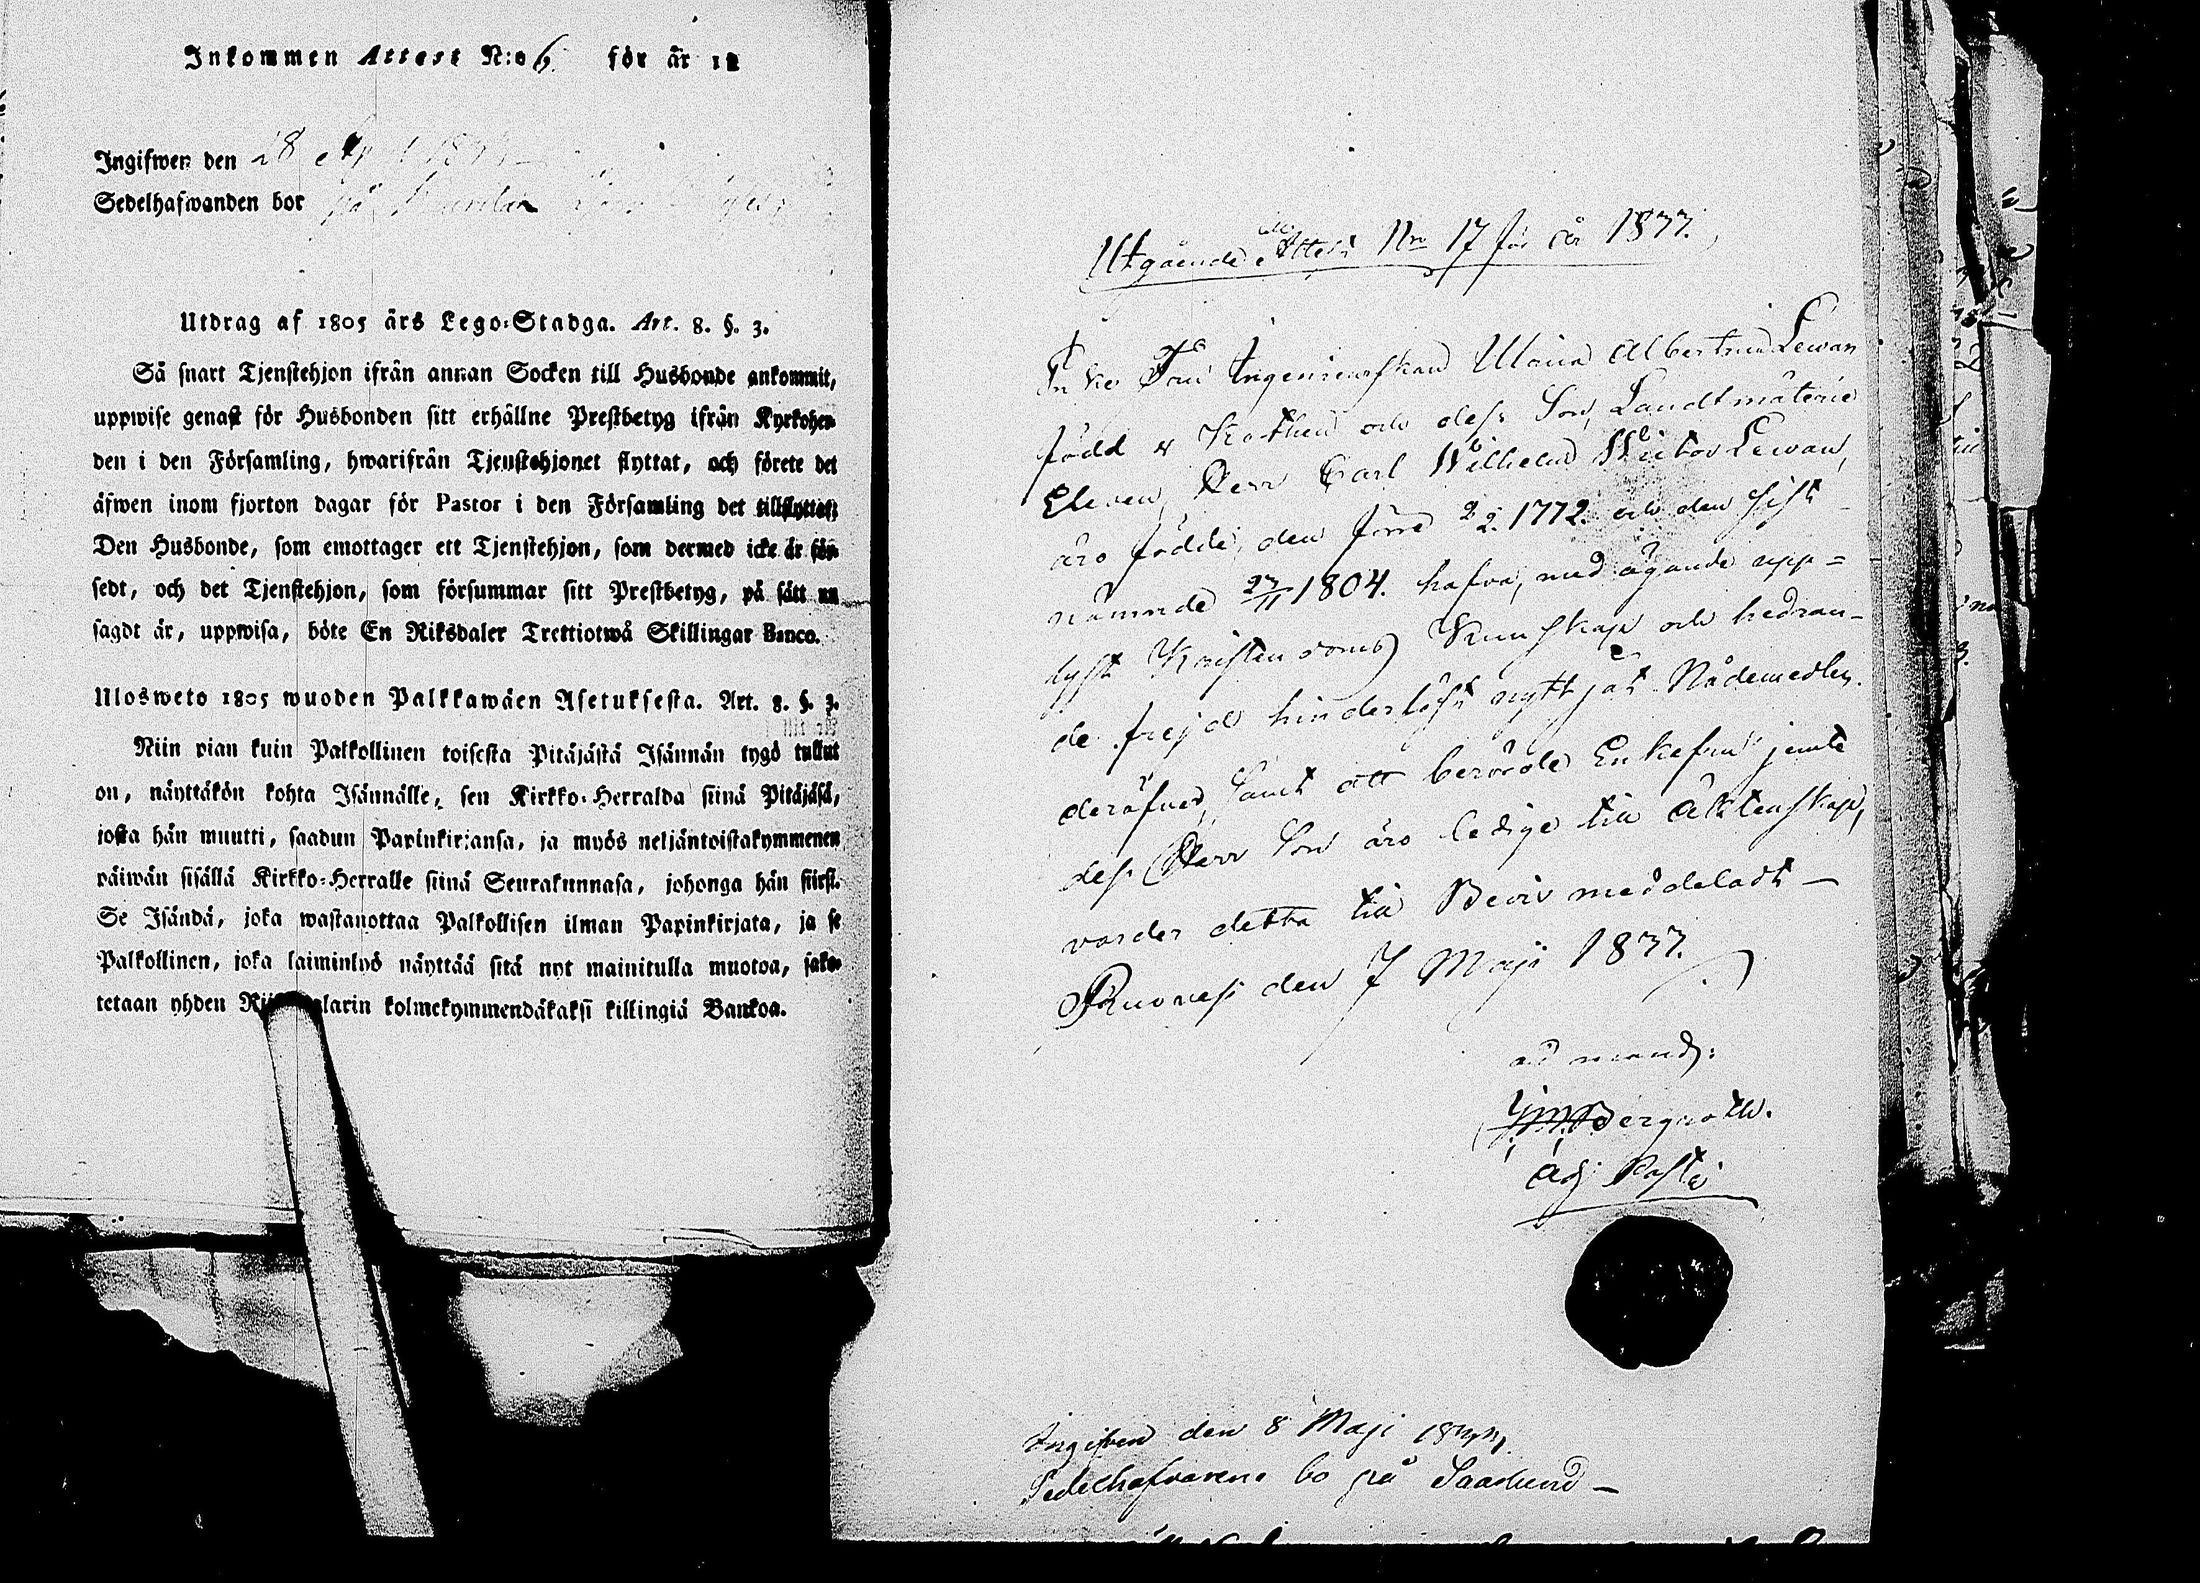 Inkommen Attest N:o 6. för år 18
Ingifwen den 28
Sedelhafwanden bor på
Utdrag af 1805 års Lego-Stadga. Art. 8. §. 3.
Så snart Tjenstehjon ifrån annan Socken till Husbonde ankommit,
uppwise genast för Husbonden sitt erhållne Prestbetyg ifrån Kyrkoher-
den i den Församling, hwarifrån Tjenstehjonet flyttat, och förete det
äfwen inom fjorton dagar för Pastor i den Församling det tillflyttat;
Den Husbonde, som emottager ett Tjenstehjon, som dermed icke är för-
sedt, och det Tjenstehjon, som försummar sitt Prestbetyg, på sätt nu
sagdt är, uppwisa, böte En Riksdaler Trettiotwå Skillingar Banco.
Ulosweto 1805 wuoden Palkkawäen Asetuksesta. Art. 8. §. 3.
Niin pian kuin Palkollinen toisesta Pitäjästä Isännän tygö tullut
on, näyttäkön kohta Isännälle, sen Kirkko-Herralda siinä Pitäjäsä,
josta hän muutti, saadun Papinkirjansa, ja myös neljäntoistakymmenen
päiwän sisällä Kirkko-Herralle siinä Seurakunnasa, johonga hän siirsi.
Se Isändä, joka wastanottaa Palkollisen ilman Papinkirjata, ja se
Palkollinen, joka laiminlyö näyttää sitä nyt mainitulla muotoa, sako-
tetaan yhden larin kolmekymmendäkaksi killingiä Bankoa.
Utgående Attest Nro 17 för år 1833.
Enke Fru Ingenieurskan Maria Albertina Lewan
född v Kothen och dess Son, Landtmäterie
Eleven, Herr Carl Wilhelm Victor Lewan,
äro födde, den förre 2/2. 1772. och den sist
nämnde 27/11 1804. hafva, med ägande upp-
lyst Kristendoms Kunskap och hedran-
de frejd hinderlöst nyttjat Nådemedlen.
deröfver, samt att berörde Enkefru jemte
dess Herr Son äro ledige till äktenskap,
varder detta till Bevis meddeladt –
Ruovesi den 7 Maji 1833.
ad mand:
Bergroth.
Adj. Past:
Ingifven den 8 Maji 1833.
Sedelhafvarene bo på Saarlund –